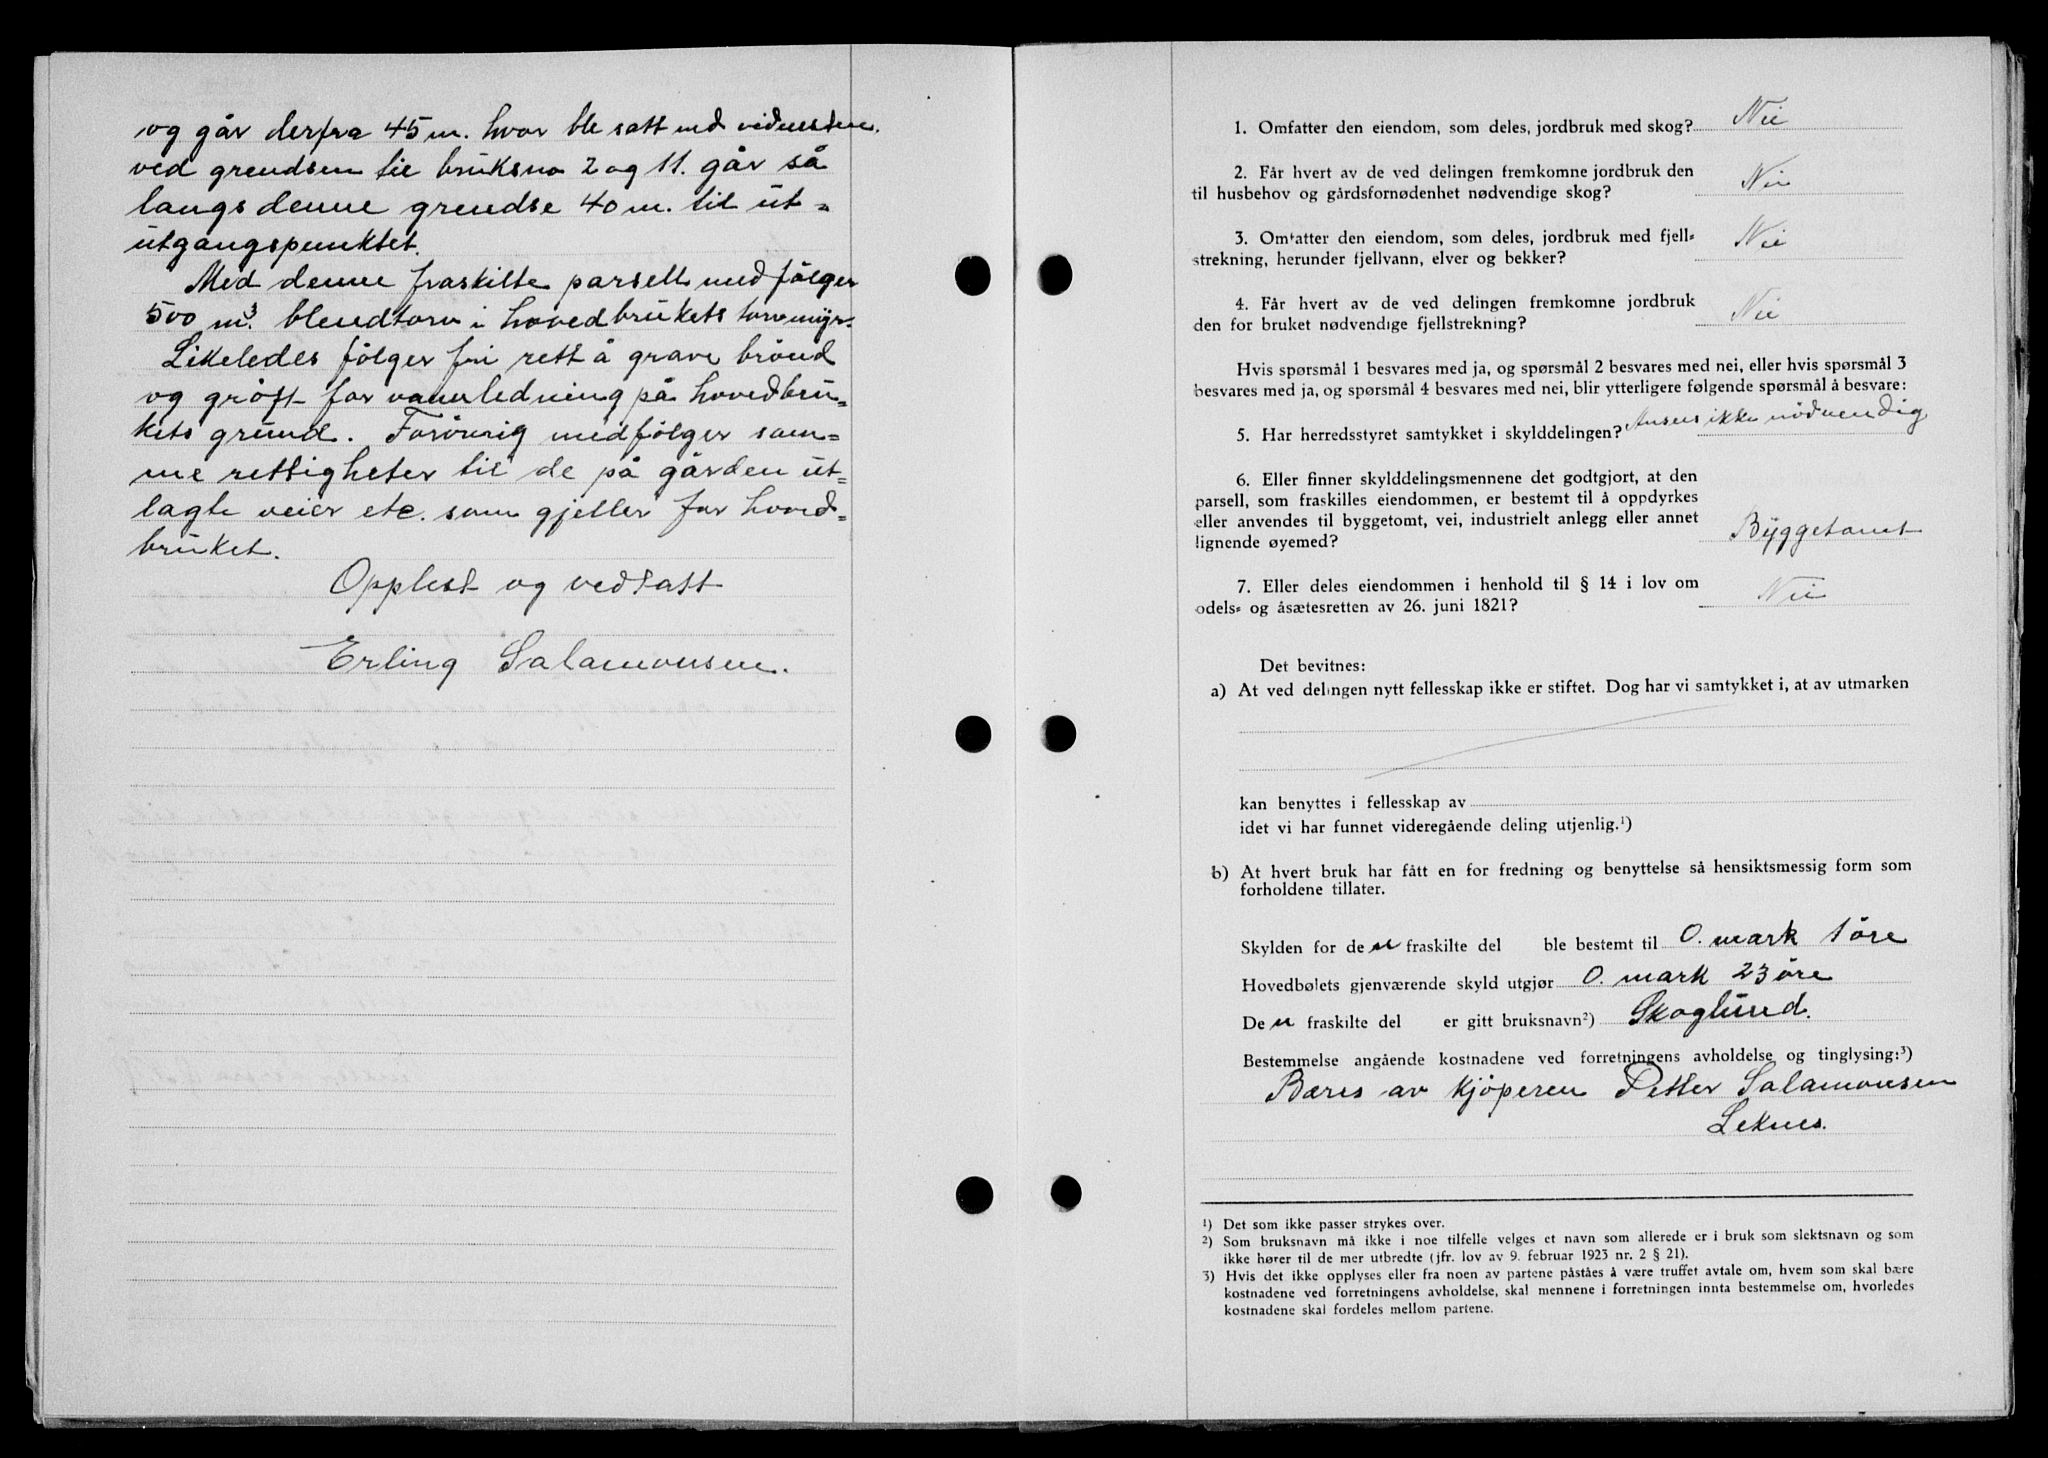 og går derfra 45 m. hvor ble satt ned vidnesten
ved grendsen til bruksno 2 og 11. går så
langs denne grendse 40 m. til ut-
utgangspunktet.
Med denne fraskilte parsell medfølger
500 m³. blendtorv i hovedbrukets torvemyr.
Likeledes følger fri rett å grave brönd
og grøft for vannledning på hovedbru-
kets grund. Forövrig medfølger sam-
me rettigheter til de på gården ut-
lagte veier etc. som gjeller for hoved-
bruket.
Opplest og vedtatt
Erling Salamonsen.
1. Omfatter den eiendom, som deles, jordbruk med skog? Nei
2. Får hvert av de ved delingen fremkomne jordbruk den
til husbehov og gårdsfornødenhet nødvendige skog? Nei
3. Omfatter den eiendom, som deles, jordbruk med fjell-
strekning, herunder fjellvann, elver og bekker? Nei
4. Får hvert av de ved delingen fremkomne jordbruk
den for bruket nødvendige fjellstrekning? Nei
Hvis spørsmål 1 besvares med ja, og spørsmål 2 besvares med nei, eller hvis spørsmål 3
besvares med ja, og spørsmål 4 besvares med nei, blir ytterligere følgende spørsmål å besvare:
5. Har herredsstyret samtykket i skylddelingen? Ansees ikke nödvendig
6. Eller finner skylddelingsmennene det godtgjort, at den
parsell, som fraskilles eiendommen, er bestemt til å oppdyrkes
eller anvendes til byggetomt, vei, industrielt anlegg eller annet
lignende øyemed? Byggetomt
7. Eller deles eiendommen i henhold til § 14 i lov om
odels- og åsætesretten av 26. juni 1821? Nei
Det bevitnes:
a) At ved delingen nytt fellesskap ikke er stiftet. Dog har vi samtykket i, at av utmarken
kan benyttes i fellesskap av
idet vi har funnet videregående deling utjenlig.¹)
b) At hvert bruk har fått en for fredning og benyttelse så hensiktsmessig form som
forholdene tillater.
Skylden for den fraskilte del ble bestemt til 0. mark 1 öre
Hovedbølets gjenværende skyld utgjør 0. mark 23 öre
Den fraskilte del er gitt bruksnavn²) Skoglund.
Bestemmelse angående kostnadene ved forretningens avholdelse og tinglysing:³)
Bæres av kjöperen Petter Salamonsen
Leknes.
¹) Det som ikke passer strykes over.
²) Som bruksnavn må ikke i noe tilfelle velges et navn som allerede er i bruk som slektsnavn og som
ikke hører til de mer utbredte (jfr. lov av 9. februar 1923 nr. 2 § 21).
³) Hvis det ikke opplyses eller fra noen av partene påståes å være truffet avtale om, hvem som skal bære
kostnadene ved forretningens avholdelse, skal mennene i forretningen innta bestemmelse om, hvorledes
kostnadene skal fordeles mellom partene.